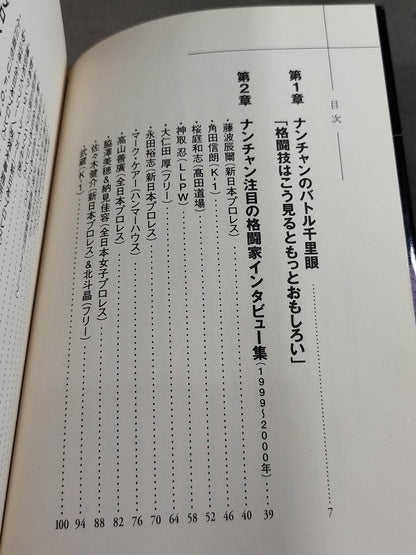 目次
第1章 ナンチャンのバトル千里眼
「格闘技はこう見るともっとおもしろい」 7
第2章 ナンチャン注目の格闘家インタビュー集(1999〜2000年) 39
藤波辰爾(新日本プロレス) 40
角田信朗(K-1) 46
桜庭和志(髙田道場) 52
神取 忍(LLPW) 58
大仁田 厚(フリー) 64
永田裕志(新日本プロレス) 70
マーク・ケアー(ハンマーハウス) 76
高山善廣(全日本プロレス) 82
脇澤美穂&納見佳容(全日本女子プロレス) 88
佐々木健介(新日本プロレス)&北斗晶(フリー) 94
武蔵(K-1) 100